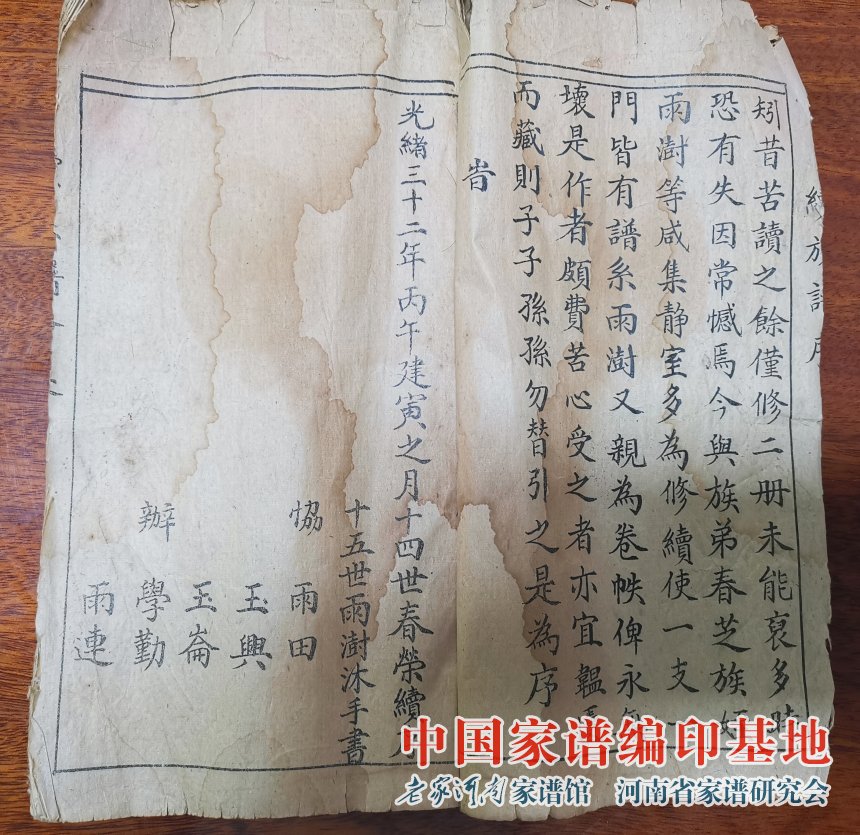 續族譜序
矧昔苦讀之餘僅修二冊未能裒多
恐有失因常憾焉今與族弟春芝族
雨澍等咸集静室多為修續使一支一
門皆有譜系雨澍又親為卷帙俾永勿
壞是作者頗費苦心受之者亦宜韞焉
而藏則子子孫孫勿替引之是為序
旹
光緒三十二年丙午建寅之月十四世春榮續
十五世雨澍沐手書
協 雨田
玉興
玉崙
辦 學勤
雨連
中国家谱编印基地
老家河南家谱馆 河南省家谱研究会